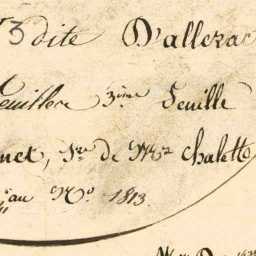 3 dite D'allezac
feuillere 3ème feuille
net, Sre de Mr Chalette
au No 1813.